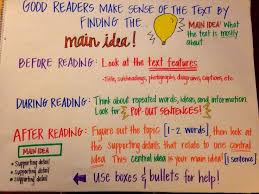 GOOD READERS MAKE SENSE OF THE TEXT BY
FINDING THE...
main idea!
MAIN IDEA! What
the text is mostly
about
BEFORE READING: Look at the text features
-Title, subheadings, photographs, diagrams, captions, etc.
DURING READING: Think about repeated words, ideas, and information.
Look for "POP-OUT SENTENCES!"
AFTER READING: Figure out the topic [1-2 words], then look at
the supporting details that relate to one central
idea. This central idea is your main idea! [1 sentence]
MAIN IDEA
• supporting detail
• supporting detail
• supporting detail
Use boxes & bullets for help!